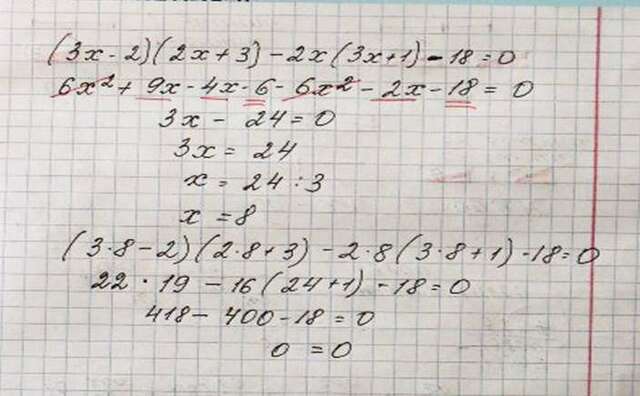 (3x - 2)(2x + 3) - 2x(3x + 1) - 18 = 0
6x² + 9x - 4x - 6 - 6x² - 2x - 18 = 0
3x - 24 = 0
3x = 24
x = 24 : 3
x = 8
(3·8 - 2)(2·8 + 3) - 2·8(3·8 + 1) - 18 = 0
22 · 19 - 16(24 + 1) - 18 = 0
418 - 400 - 18 = 0
0 = 0